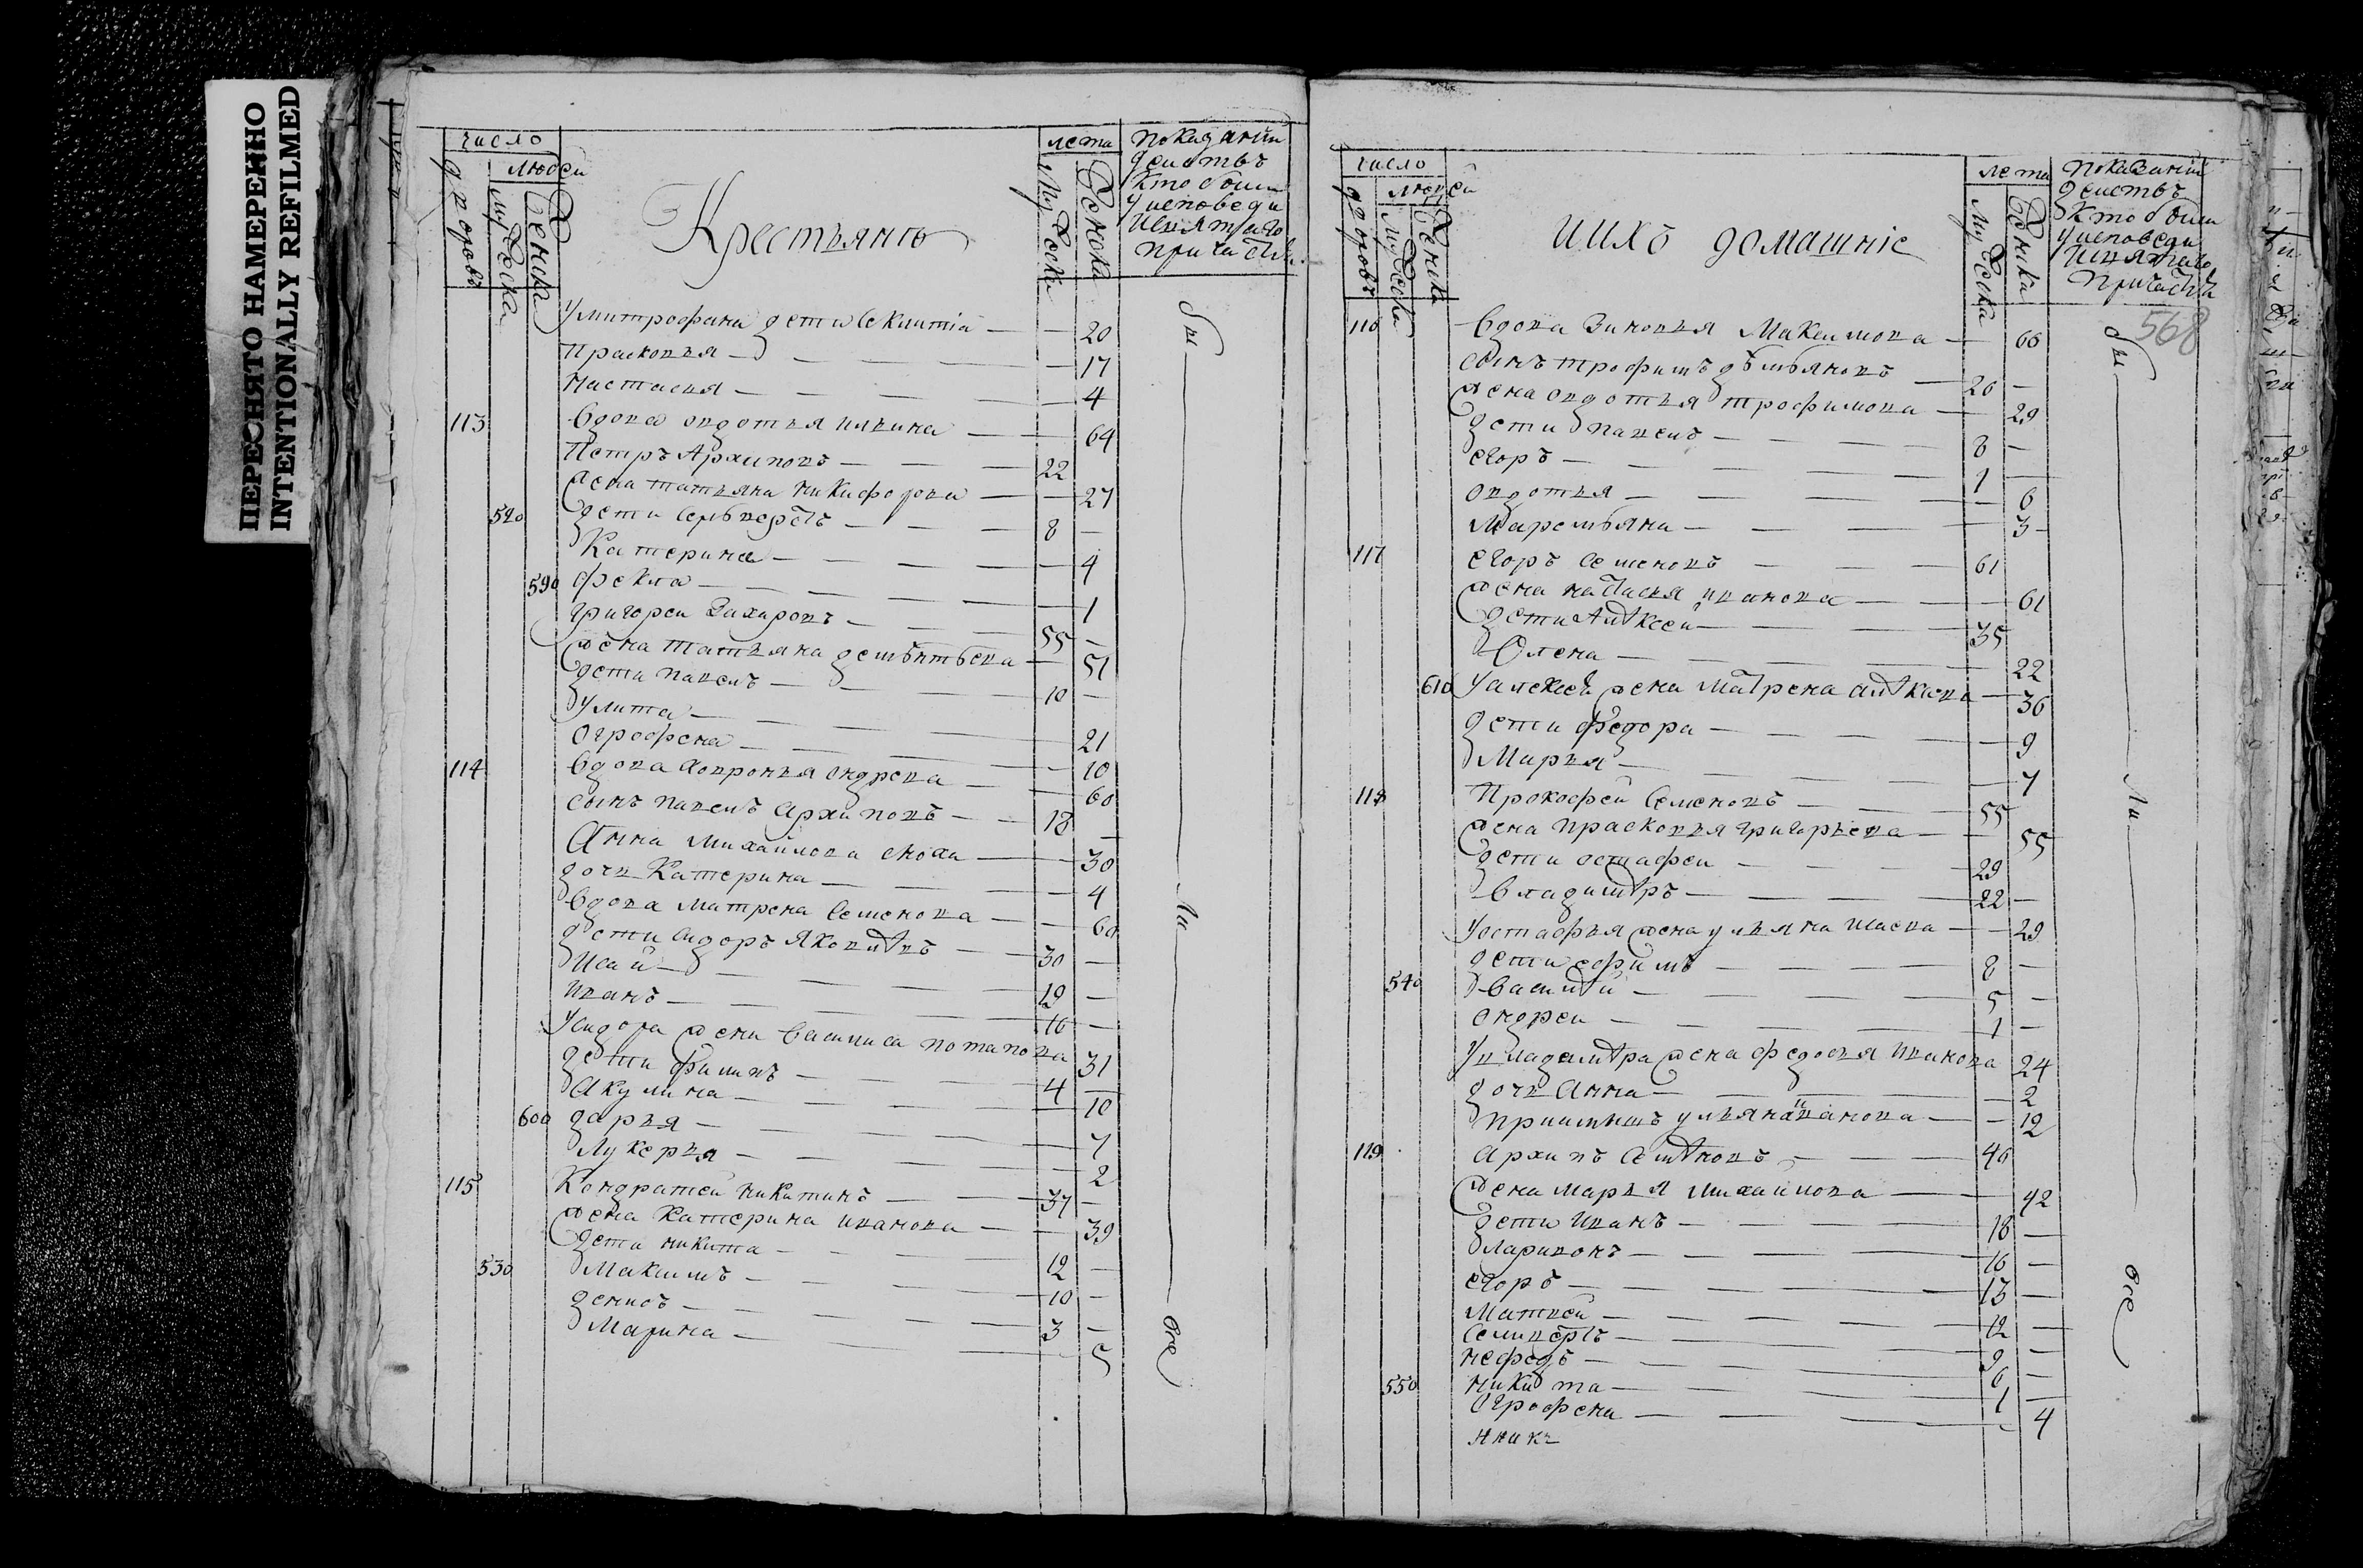 ПЕРЕСНЯТО НАМЕРЕННО
INTENTIONALLY REFILMED
число
людей
дворовъ
мужеска
женска
Крестьянъ
лета
мужеска
женска
показаниі
действъ
кто были
у исповеди
и святаго
причастія
у митрофана дети секлитиа 20
Прасковья 17
настасья 4
113 вдова овдотья ильина 64
Петръ Архиповъ 22
жена татьяна никифорова 27
520 дети сельверстъ 8
Катерина 4
590 фекла 1
григореи Захаровъ 55
жена татьяна дементьева 51
дети павелъ 10
улита 21
огрофена 10
114 вдова ховронья ондрева 60
сынъ павелъ архиповъ 18
Анна михайлова сноха 30
дочь Катерина 4
вдова матрена семенова 60
дети сидоръ яковлевъ 30
исай 19
иванъ 16
у сидора жена василиса потапова 31
дети филипъ 4
акулина 10
600 дарья 7
лукерья 2
115 Кондратей никитинъ 37
жена катерина иванова 39
дети никита 12
530 Максимъ 10
денисъ 3
Марина 5
бы
ли
все
число
людей
дворовъ
мужеска
женска
и ихъ домашніе
лета
мужеска
женска
показаниі
действъ
кто были
у исповеди
и святаго
причастія
568
116 вдова Зиновья Максимова 66
сынъ трофимъ дѣмьяновъ 26
жена овдотья трофимова 29
дети павелъ 8
егоръ 1
овдотья 6
Маремьяна 3
117 егоръ семеновъ 61
жена настасья иванова 61
дети алексей 35
Олена 22
610 у алексея жена матрена алексева 36
дети федора 9
Марья 7
118 Прокофей семеновъ 55
жена прасковья григорьева 55
дети остафеи 29
владимеръ 22
у остафья жена ульяна исаева 29
дети ефимъ 8
540 василей 5
ондреи 1
у владимера жена федосья иванова 24
дочь анна 2
приимышъ ульяна иванова 12
119 архипъ семеновъ 46
жена марья михайлова 42
дети иванъ 18
ларивонъ 16
егоръ 13
матвей 12
селиверстъ 9
нефедъ 6
550 никита 1
огрофена 4
бы
ли
все